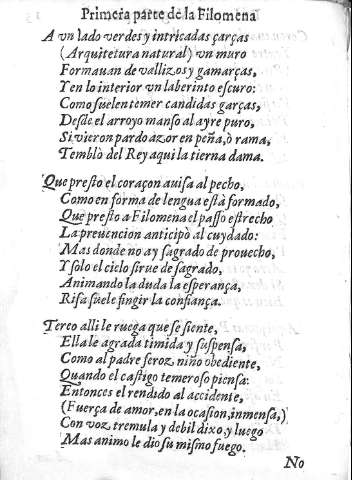 Primera parte de la Filomena
A vn lado verdes y intricadas çarças
(Arquitetura natural) vn muro
Formauan de vallizos y gamarças,
Y en lo interior vn laberinto escuro:
Como suelen temer candidas garças,
Desde el arroyo manso al ayre puro,
Si vieron pardo azor en peña, ò rama,
Temblò del Rey aqui la tierna dama.
Que presto el coraçon auisa al pecho,
Como en forma de lengua està formado,
Que presto a Filomena el passo estrecho
La preuencion anticipò al cuydado:
Mas donde no ay sagrado de prouecho,
Y solo el cielo sirue de sagrado,
Animando la duda la esperança,
Risa suele fingir la confiança.
Tereo alli le ruega que se siente,
Ella le agrada timida y suspensa,
Como al padre feroz niño obediente,
Quando el castigo temeroso piensa:
Entonces el rendido al accidente,
(Fuerça de amor, en la ocasion, inmensa,)
Con voz tremula y debil dixo, y luego
Mas animo le dio su mismo fuego.
No